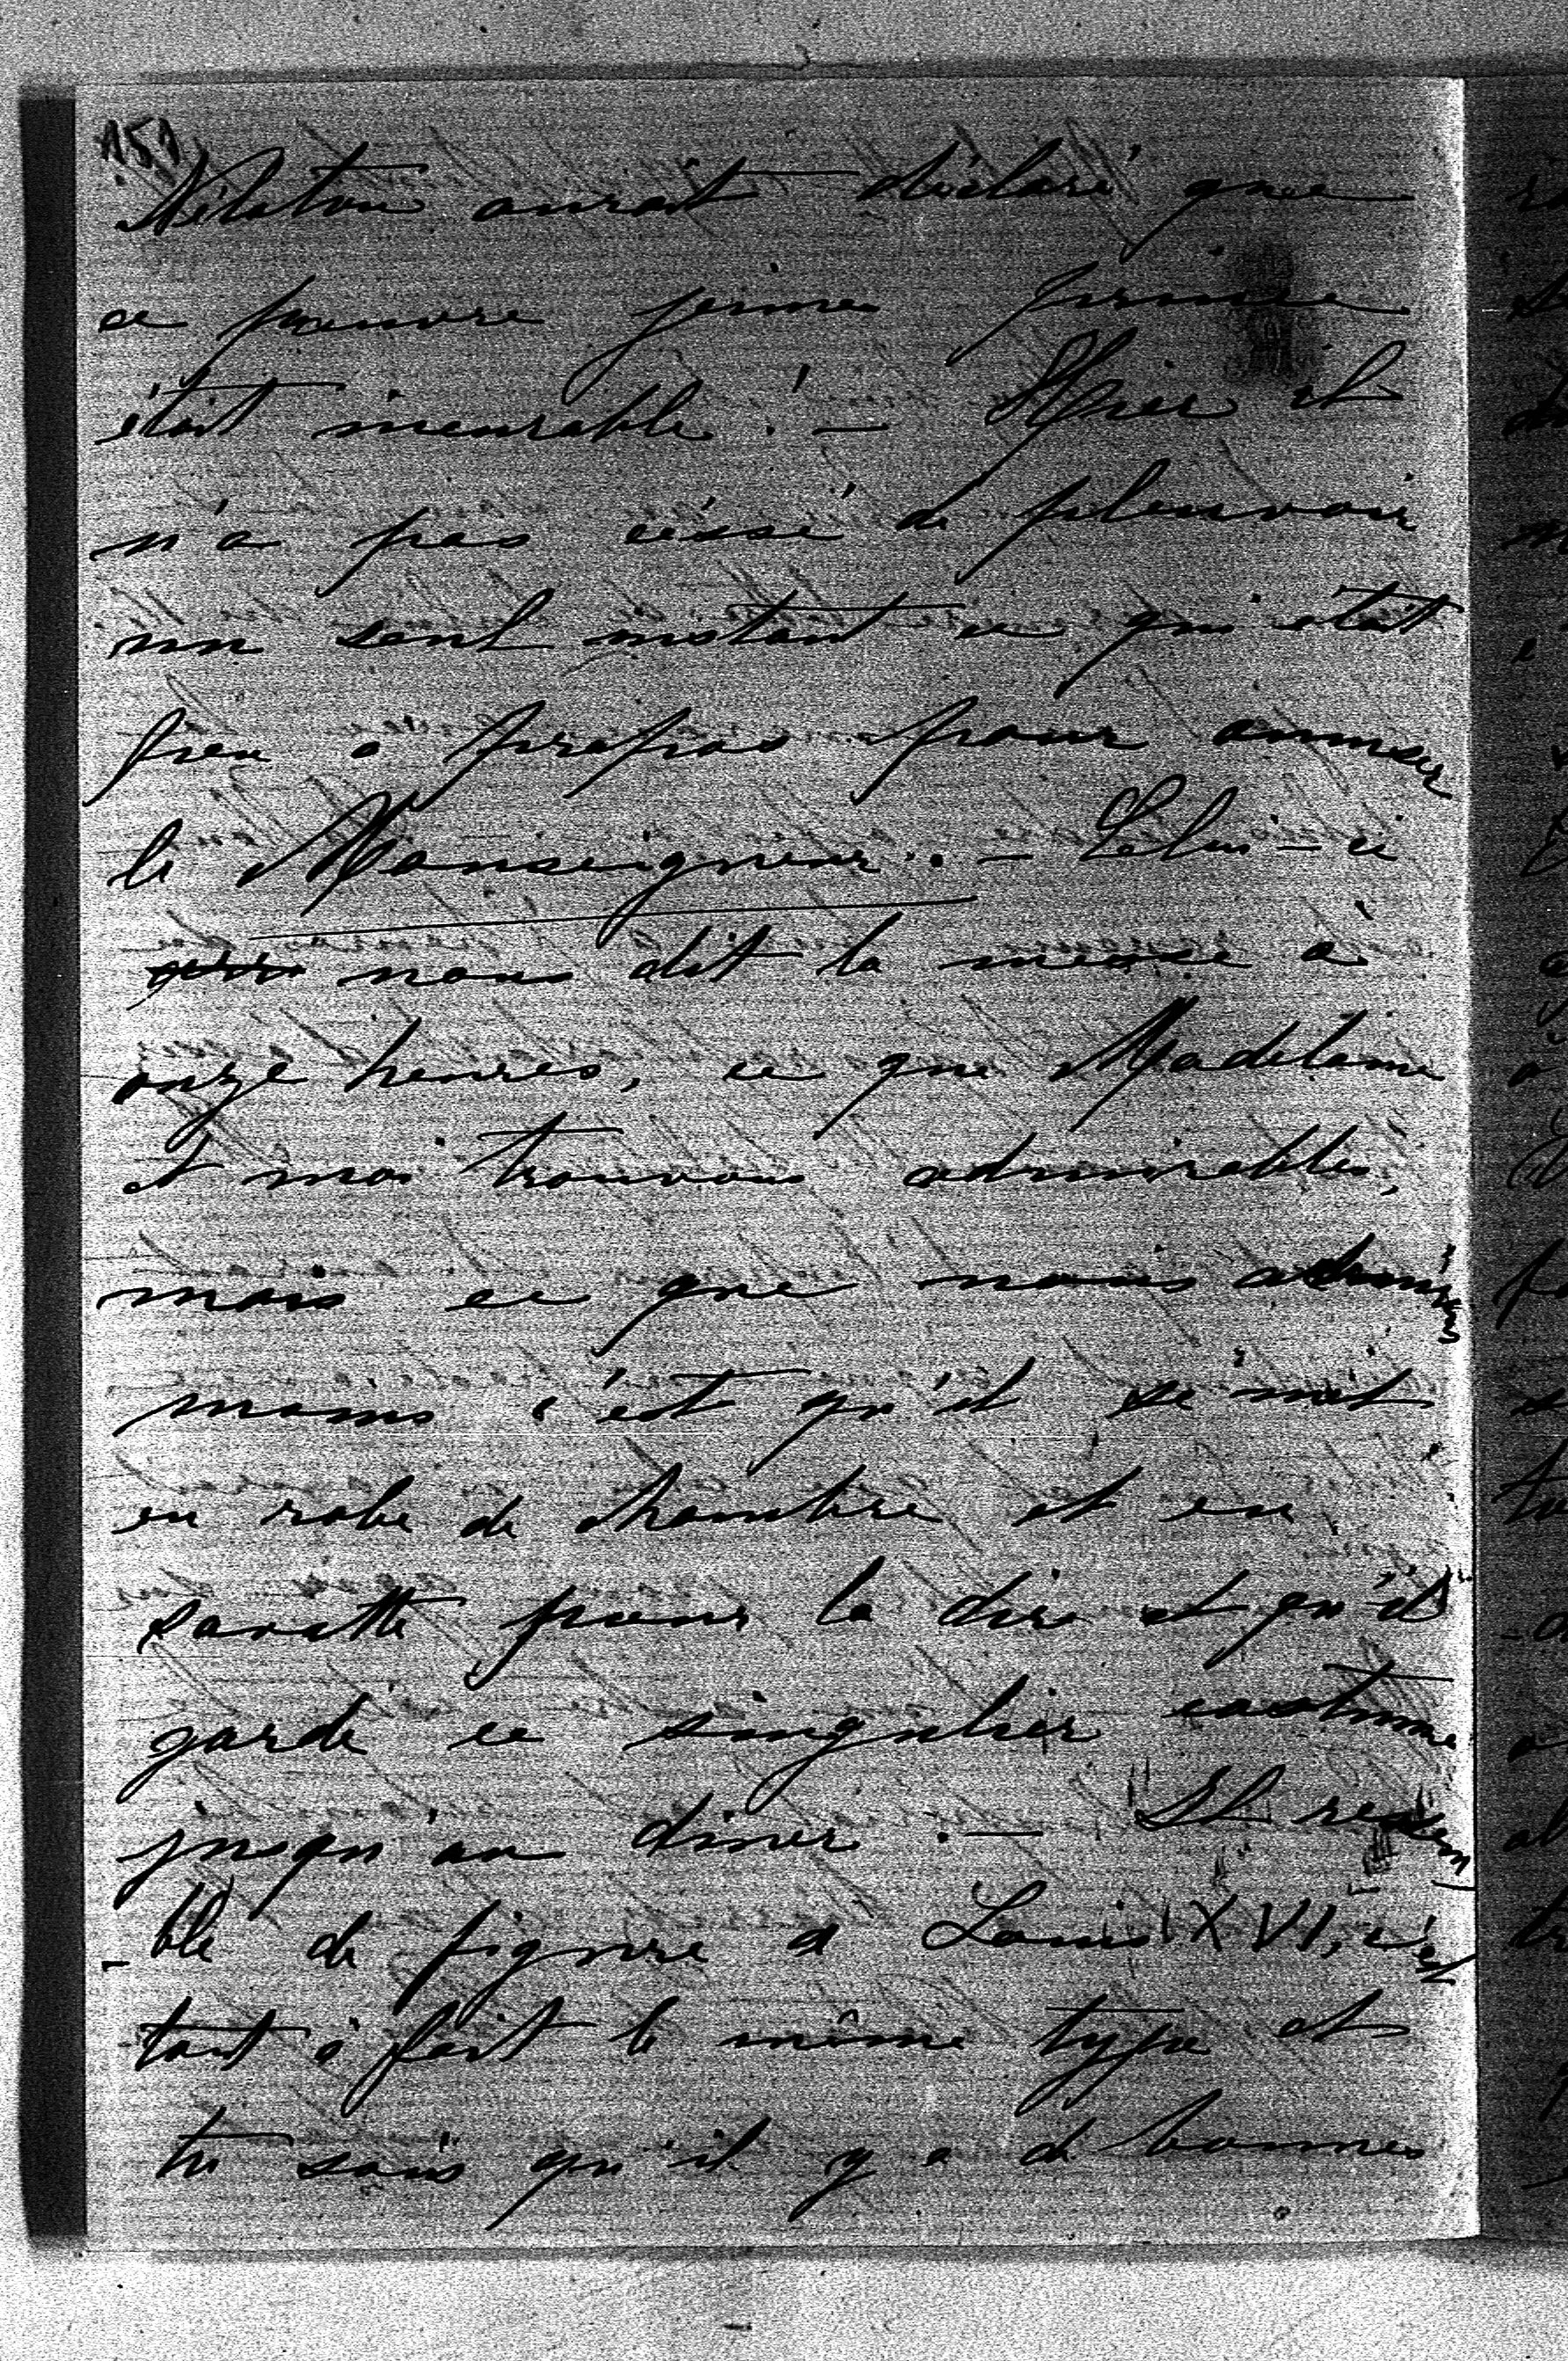 151
Nélaton aurait déclaré que
ce pauvre jeune prince
était incurable ! — Hier il
n'a pas céssé de pleuvoir
un seul instant ce qui était
peu à propos pour amuser
le Monseigneur. — Celui-ci
nous dit la messe à
onze heures, ce que Madelaine
et moi trouvons admirable,
mais ce que nous admirons
moins c'est qu'il se met
en robe de chambre et en
savatte pour la dire et qu'il
garde ce singulier costume
jusqu'au diner. — Il ressem
-ble de figure à Louis XVI, c'est
tout à fait le même type et
tu sais qu'il y a de bonnes